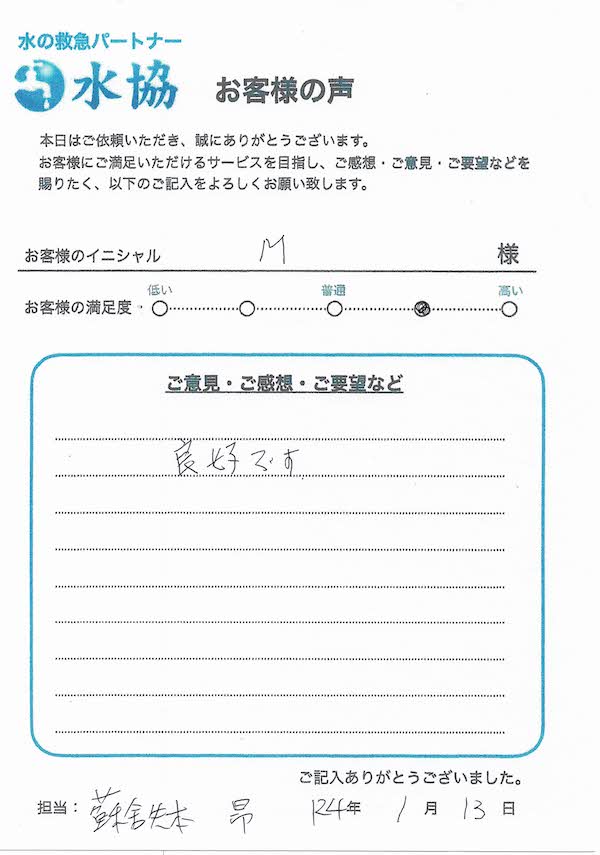 水の救急パートナー
水協 お客様の声
本日はご依頼いただき、誠にありがとうございます。
お客様にご満足いただけるサービスを目指し、ご感想・ご意見・ご要望などを
賜りたく、以下のご記入をよろしくお願い致します。
お客様のイニシャル M 様
低い 普通 高い
お客様の満足度・
ご意見・ご感想・ご要望など
良好です
ご記入ありがとうございました。
担当: 昂 R4年 1月 13日